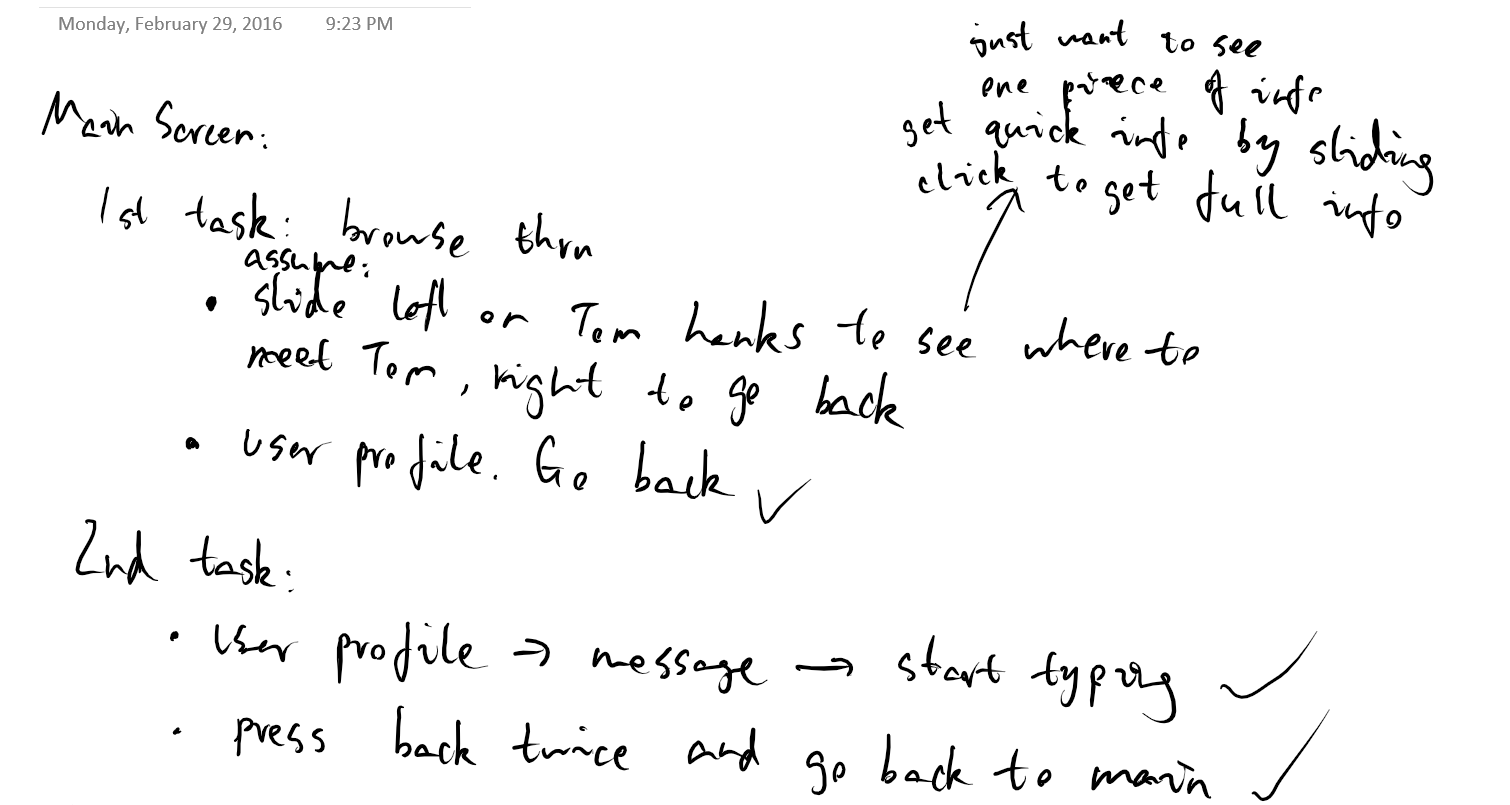 Monday, February 29, 2016 9:23 PM
just want to see
one piece of info
get quick info by sliding
click to get full info
Main Screen:
1st task: browse thru
assume:
• slide left on Tom hanks to see where to
meet Tom, right to go back
• user profile. Go back ✓
2nd task:
• user profile → message → start typing ✓
• press back twice and go back to main ✓